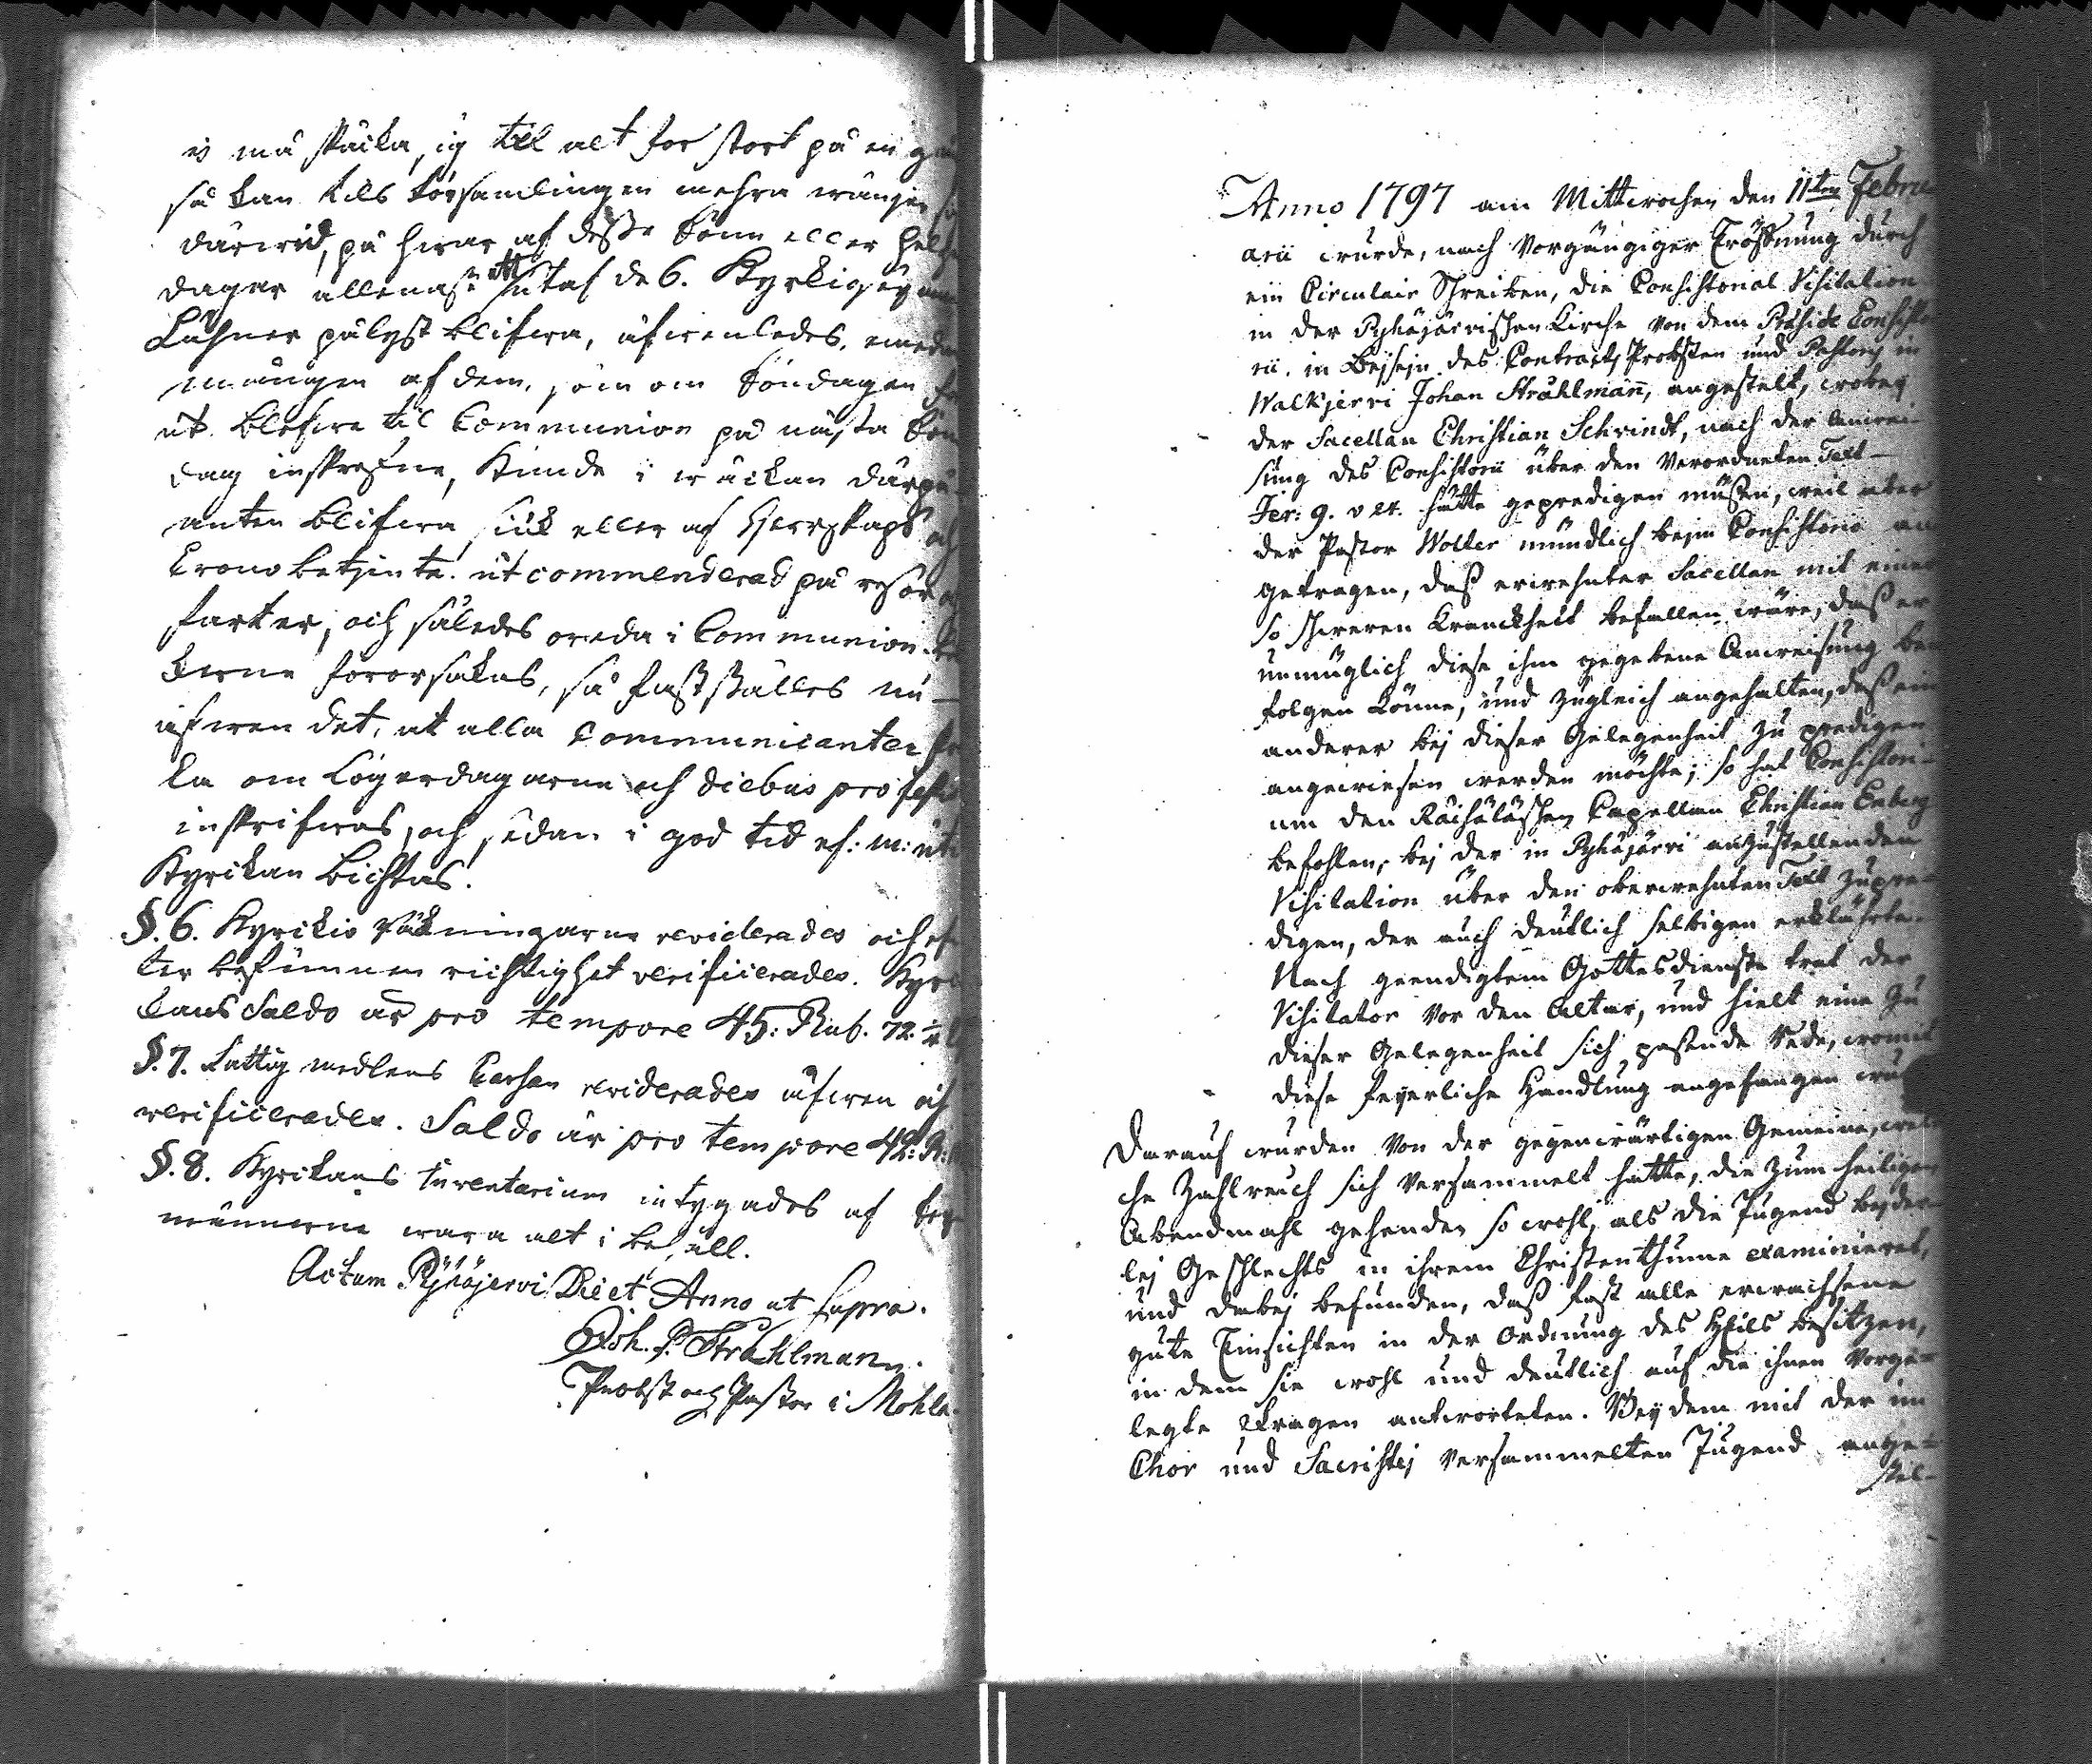 så kan tils församlingen mehra
därwid, på hwar af desse Sönn eller Helge
dagar allenast ett utaf de 6. Kyrkiogångs
Låhnen pålyst blifwa, äfwenledes, emedan
mången af dem, som om Söndagen
ut. blefwe til Communion på nästa Sön
dag inskrefne, kunde i wäckan därpå
antin blifwa siuk eller af Herrskaps och
Crono betjente utcommenderad på resor och
farter, och således oreda i Communion.
kerne förorsakas, så fastställes nu
äfwen det, at alla Communicanter
ka om Lögerdagarne och diebus profestis
inskrifwas, och sedan i god tid ef: m: uti
Kyrckan bichtas.
§. 6. Kyrckio Räkningarne reviderades och ef
ter befunnen richtighet verificerades. Kyr
kans Saldo är pro tempore 45: Rub. 72. ½
§. 7. Fattig medlens Cassan reviderades äfwen och
verificerades. Saldo är pro tempore 42: R:
§. 8. Kyrckans Inventarium intygades af
männerne wara alt i behåll.
Actum Pyhäjerwi Die et Anno ut supra.
Joh. F. Strahlmann.
Probst och Pastor i Mohla.
Anno 1797 am Mittwochen den 11ten Febru
arii wurde, nach vorgängiger Eröffnung durch
ein Circulair Schreiben, die Consistorial Visitation
in der Pyhäjärvischen Kirche von dem Präside Consisto
rii, in Beyseyn des Contracts Probsten und Pastoris in
Walkjervi Johan Strahlmann, angestelt, wobey
der Sacellan Christian Schwindt, nach der Anwei-
sung des Consistorii über den verordneten Text
Jer: 9. v 24. hätte gepredigen müßen, weil aber
der Pastor Woller mündlich beym Consistorio an
getragen, daß erwehnter Sacellan mit einer
so schweren Kranckheit befallen wäre, daß er
unmüglich diese ihm gegebene Anweisung be
folgen könne, und zugleich angehalten, daß ein
anderer bey dieser Gelegenheit zu predigen
angewiesen werden möchte; so hat Consistori-
um den Räisäläschen Capellan Christian Enberg
befohlen, bey der in Pyhäjärvi anzustellenden
Visitation über den oberwehnten Text zu pre-
digen, der auch deutlich selbigen erklährte.
Nach geendigtem Gottesdienste trat der
Visitator vor den Altar, und hielt eine zu
dieser Gelegenheit sich paßende Rede, womit
diese feyerliche Handlung angefangen wur
Darauf wurden von der gegenwärtigen Gemeine, wel
che zahlreich sich versammelt hatte, die zum heiligen
Abendmahl gehenden so wohl, als die Jugend beyder-
ley Geschlechts in ihrem Christenthume examinieret,
und dabey befunden, daß fast alle erwachsene
gute Einsichten in der Ordnung des Heils besitzen,
in dem sie wohl und deutlich auf die ihnen vorge-
legte Fragen antworteten. Bey dem mit der im
Chor und Sacristey versammelten Jugend ange-
stel-